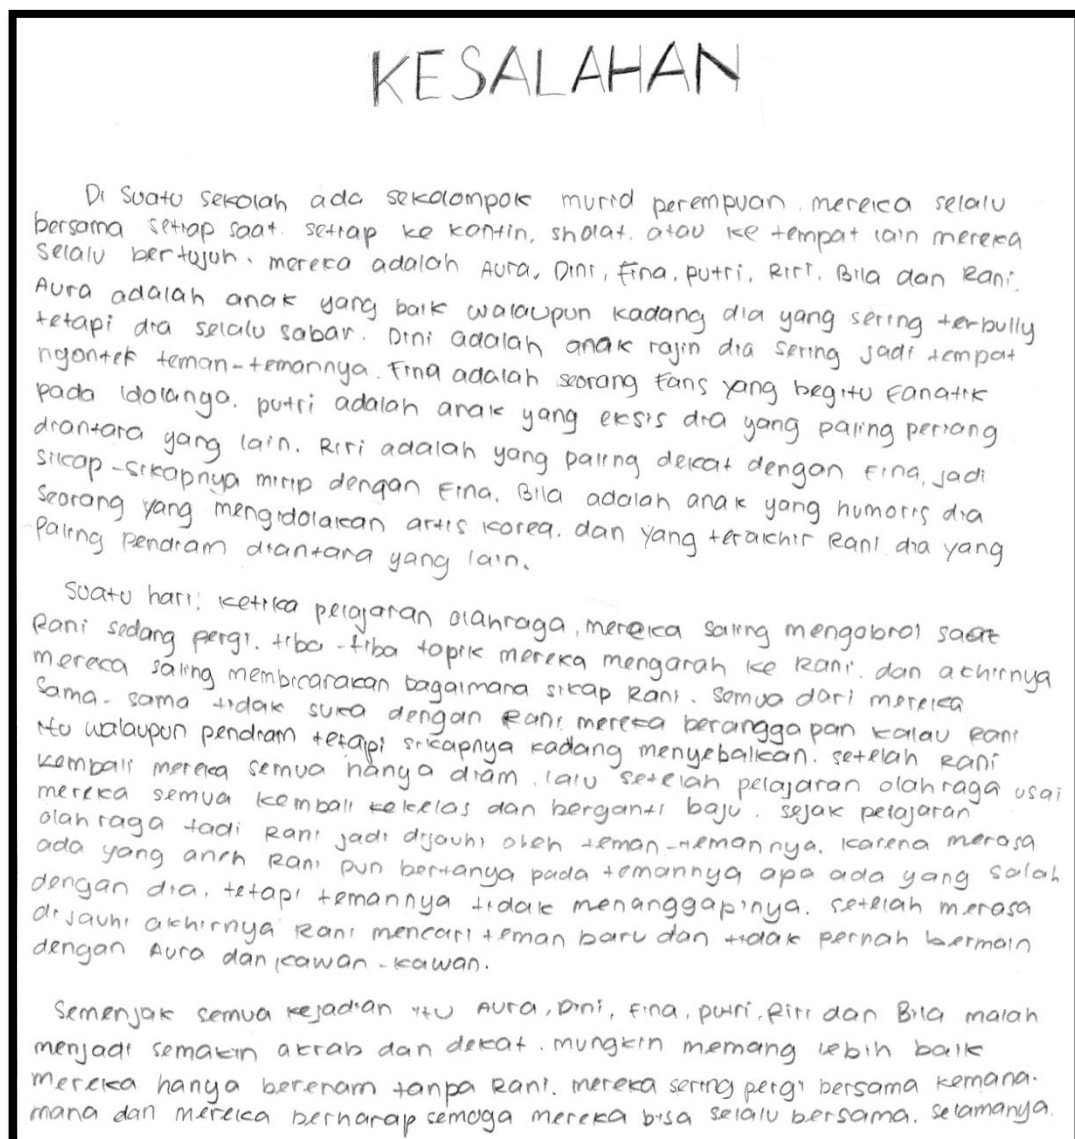 KESALAHAN
Di suatu sekolah ada sekolompok murid perempuan. mereka selalu
bersama setiap saat. setiap ke kantin, sholat, atau ke tempat lain mereka
selalu bertujuh. mereka adalah Aura, Dini, Fina, putri, Riri, Bila dan Rani.
Aura adalah anak yang baik walaupun kadang dia yang sering terbully
tetapi dia selalu sabar. Dini adalah anak rajin dia sering jadi tempat
ngontek teman-temannya. Fina adalah seorang Fans yang begitu Fanatik
pada idolanga. putri adalah anak yang eksis dia yang paling periang
diantara yang lain. Riri adalah yang paling dekat dengan Fina, jadi
sikap-sikapnya mirip dengan Fina. Bila adalah anak yang humoris dia
seorang yang mengidolakan artis korea. dan yang terakhir Rani dia yang
Paling pendiam diantara yang lain.
Suatu hari, ketika pelajaran olahraga, mereka saling mengobrol saat
Rani sedang pergi. tiba-tiba topik mereka mengarah ke Rani. dan achirnya
mereka saling membicarakan bagaimana sikap Rani. semua dari mereka
sama-sama tidak suka dengan Rani. mereka beranggapan kalau Rani
itu walaupun pendiam tetapi sikapnya kadang menyebalkan. setelah Rani
kembali mereka semua hanya diam. lalu setelah pelajaran olahraga usai
mereka semua kembali kekelas dan berganti baju. sejak pelajaran
olahraga tadi Rani jadi dijauhi oleh teman-temannya. karena merasa
ada yang aneh Rani pun bertanya pada temannya apa ada yang salah
dengan dia. tetapi temannya tidak menanggapinya. setelah merasa
dijauhi akhirnya Rani mencari teman baru dan tidak pernah bermain
dengan Aura dan kawan-kawan.
Semenjak semua kejadian itu Aura, Dini, Fina, putri, Riri dan Bila malah
menjadi semakin akrab dan dekat. mungkin memang lebih baik
mereka hanya berenam tanpa Rani. mereka sering pergi bersama kemana-
mana dan mereka berharap semoga mereka bisa selalu bersama. selamanya.